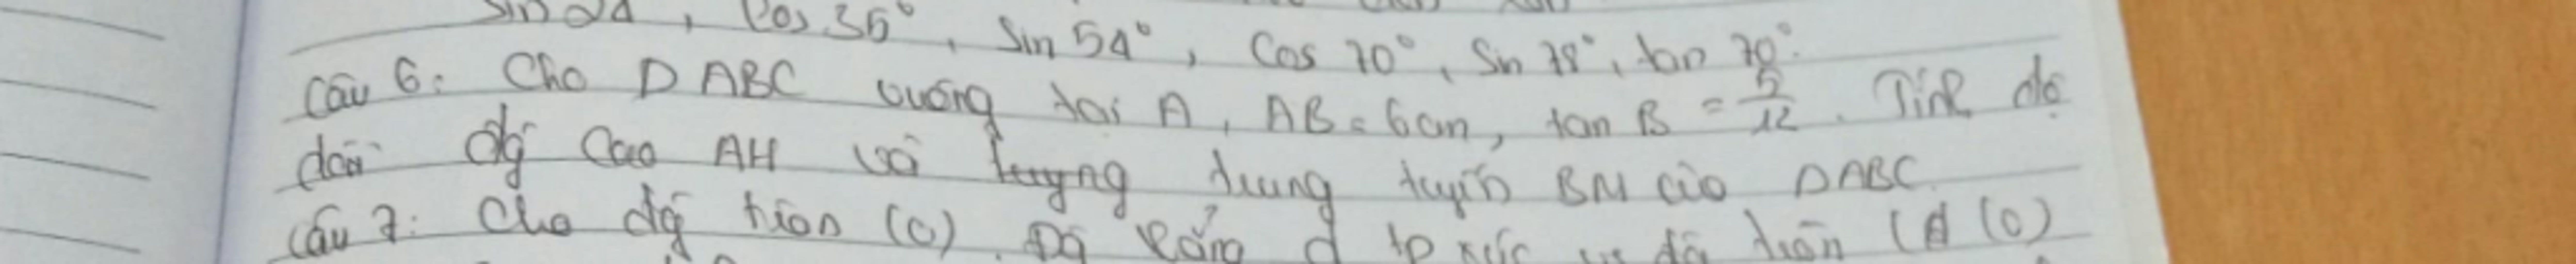 Sin 24, Cos 35°, Sin 54°, Cos 70°, Sin 78°, tan 70°.
Câu 6: Cho Δ ABC vuông tại A, AB = 6cm, tan B = 5/12. Tính độ
dài đg cao AH và trung tuyến BM của ΔABC
Câu 7: Cho đg tròn (O). Đg thẳng d tp xúc vs đg tròn (O)